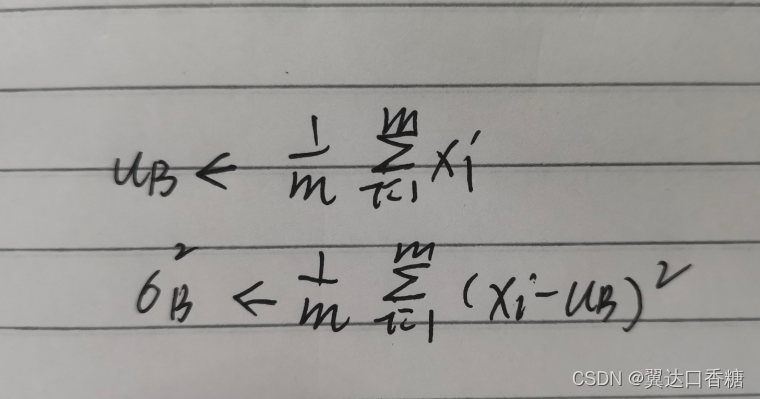 u_B ← \frac{1}{m} \sum_{i=1}^{m} x_i
σ_B^2 ← \frac{1}{m} \sum_{i=1}^{m} (x_i - u_B)^2
CSDN @翼达口香糖